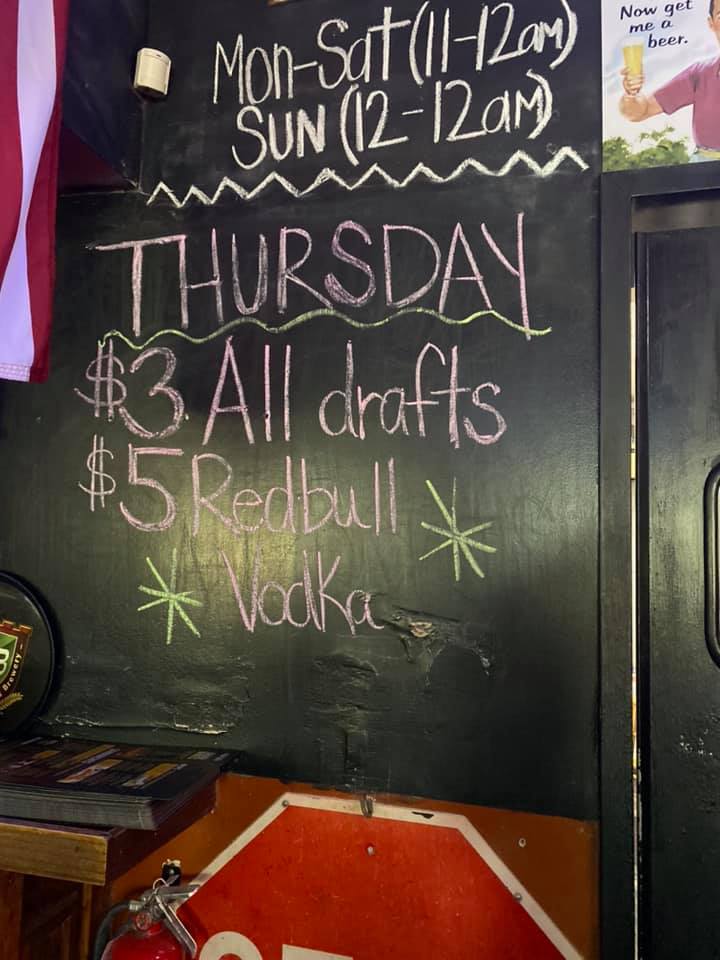 Now get
me a
beer.
Mon-Sat (11-12am)
SUN (12-12aM)
THURSDAY
$3 All drafts
$5 Redbull
Vodka
Brewery